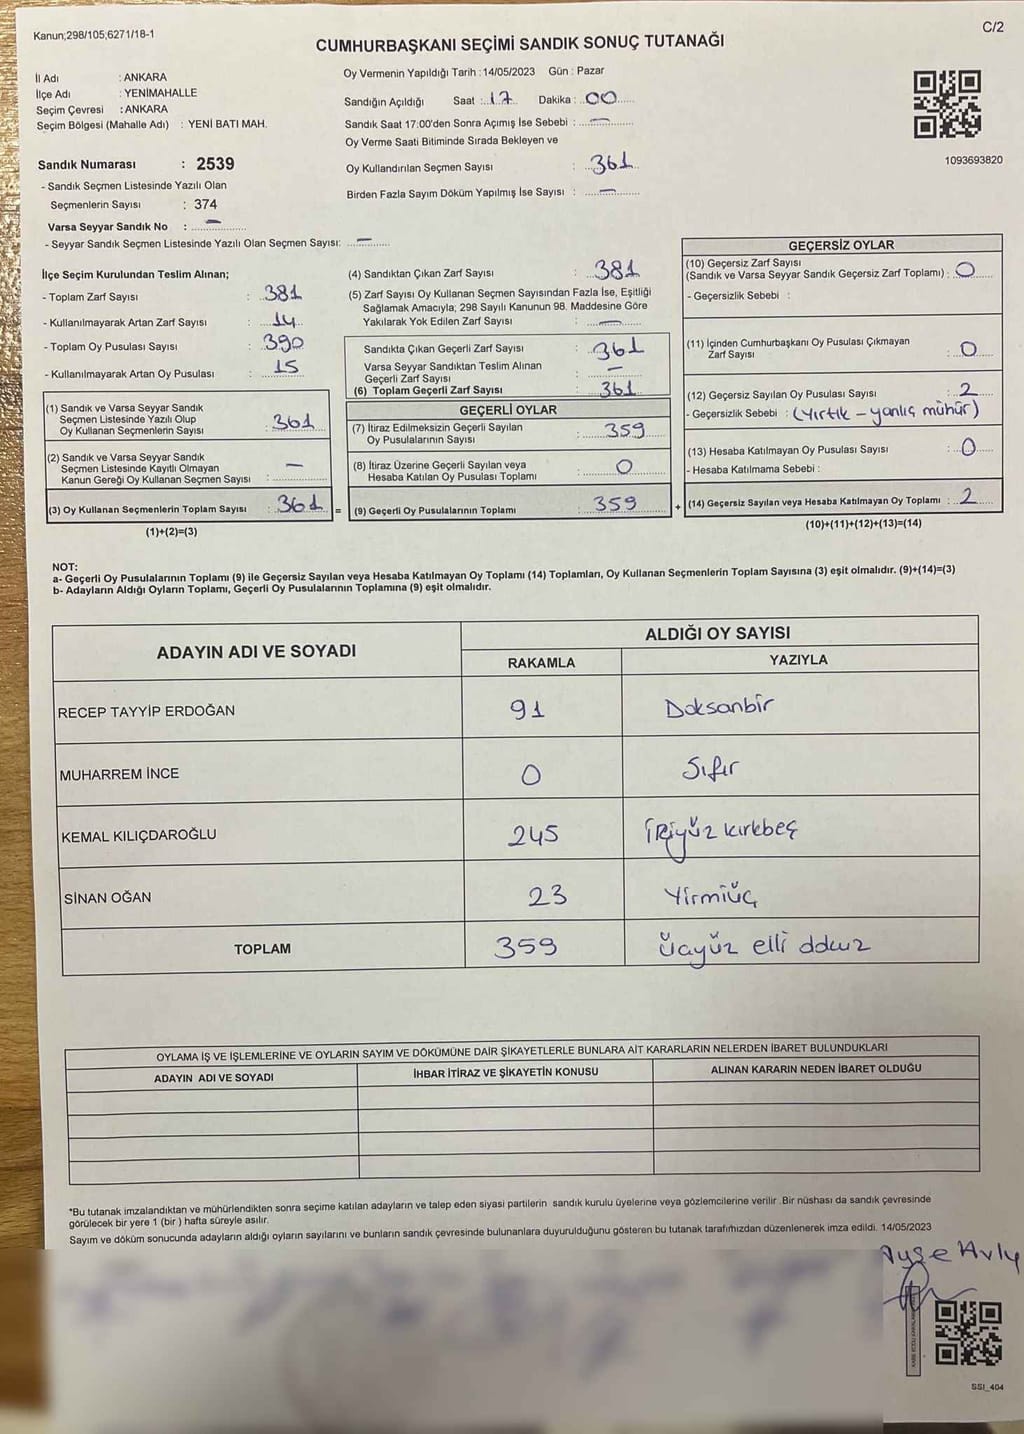 Kanun;298/105;6271/18-1
C/2
CUMHURBAŞKANI SEÇİMİ SANDIK SONUÇ TUTANAĞI
İl Adı : ANKARA
İlçe Adı : YENİMAHALLE
Seçim Çevresi : ANKARA
Seçim Bölgesi (Mahalle Adı) : YENİ BATI MAH.
Sandık Numarası : 2539
- Sandık Seçmen Listesinde Yazılı Olan
Seçmenlerin Sayısı : 374
Varsa Seyyar Sandık No : —
- Seyyar Sandık Seçmen Listesinde Yazılı Olan Seçmen Sayısı: —
Oy Vermenin Yapıldığı Tarih :14/05/2023 Gün : Pazar
Sandığın Açıldığı Saat : 17 Dakika : 00
Sandık Saat 17:00'den Sonra Açımış İse Sebebi : —
Oy Verme Saati Bitiminde Sırada Bekleyen ve
Oy Kullandırılan Seçmen Sayısı : 361
Birden Fazla Sayım Döküm Yapılmış İse Sayısı : —
1093693820
İlçe Seçim Kurulundan Teslim Alınan;
- Toplam Zarf Sayısı : 381
- Kullanılmayarak Artan Zarf Sayısı : 14
- Toplam Oy Pusulası Sayısı : 390
- Kullanılmayarak Artan Oy Pusulası : 15
(1) Sandık ve Varsa Seyyar Sandık
Seçmen Listesinde Yazılı Olup
Oy Kullanan Seçmenlerin Sayısı : 361
(2) Sandık ve Varsa Seyyar Sandık
Seçmen Listesinde Kayıtlı Olmayan
Kanun Gereği Oy Kullanan Seçmen Sayısı : —
(3) Oy Kullanan Seçmenlerin Toplam Sayısı : 361 =
(1)+(2)=(3)
(4) Sandıktan Çıkan Zarf Sayısı : 381
(5) Zarf Sayısı Oy Kullanan Seçmen Sayısından Fazla İse, Eşitliği
Sağlamak Amacıyla; 298 Sayılı Kanunun 98. Maddesine Göre
Yakılarak Yok Edilen Zarf Sayısı : —
Sandıkta Çıkan Geçerli Zarf Sayısı : 361
Varsa Seyyar Sandıktan Teslim Alınan
Geçerli Zarf Sayısı : —
(6) Toplam Geçerli Zarf Sayısı : 361
GEÇERLİ OYLAR
(7) İtiraz Edilmeksizin Geçerli Sayılan
Oy Pusulalarının Sayısı : 359
(8) İtiraz Üzerine Geçerli Sayılan veya
Hesaba Katılan Oy Pusulası Toplamı : 0
(9) Geçerli Oy Pusulalarının Toplamı : 359 +
GEÇERSİZ OYLAR
(10) Geçersiz Zarf Sayısı
(Sandık ve Varsa Seyyar Sandık Geçersiz Zarf Toplamı) : 0
- Geçersizlik Sebebi :
(11) İçinden Cumhurbaşkanı Oy Pusulası Çıkmayan
Zarf Sayısı : 0
(12) Geçersiz Sayılan Oy Pusulası Sayısı : 2
- Geçersizlik Sebebi : (Yırtık – yanlış mühür)
(13) Hesaba Katılmayan Oy Pusulası Sayısı : 0
- Hesaba Katılmama Sebebi :
(14) Geçersiz Sayılan veya Hesaba Katılmayan Oy Toplamı : 2
(10)+(11)+(12)+(13)=(14)
NOT:
a- Geçerli Oy Pusulalarının Toplamı (9) ile Geçersiz Sayılan veya Hesaba Katılmayan Oy Toplamı (14) Toplamları, Oy Kullanan Seçmenlerin Toplam Sayısına (3) eşit olmalıdır. (9)+(14)=(3)
b- Adayların Aldığı Oyların Toplamı, Geçerli Oy Pusulalarının Toplamına (9) eşit olmalıdır.
ADAYIN ADI VE SOYADI
ALDIĞI OY SAYISI
RAKAMLA YAZIYLA
RECEP TAYYİP ERDOĞAN 91 Doksanbir
MUHARREM İNCE 0 Sıfır
KEMAL KILIÇDAROĞLU 245 İkiyüz kırkbeş
SİNAN OĞAN 23 Yirmiüç
TOPLAM 359 Üçyüz elli
OYLAMA İŞ VE İŞLEMLERİNE VE OYLARIN SAYIM VE DÖKÜMÜNE DAİR ŞİKAYETLERLE BUNLARA AİT KARARLARIN NELERDEN İBARET BULUNDUKLARI
ADAYIN ADI VE SOYADI İHBAR İTİRAZ VE ŞİKAYETİN KONUSU ALINAN KARARIN NEDEN İBARET OLDUĞU
*Bu tutanak imzalandıktan ve mühürlendikten sonra seçime katılan adayların ve talep eden siyasi partilerin sandık kurulu üyelerine veya gözlemcilerine verilir .Bir nüshası da sandık çevresinde
görülecek bir yere 1 (bir ) hafta süreyle asılır.
Sayım ve döküm sonucunda adayların aldığı oyların sayılarını ve bunların sandık çevresinde bulunanlara duyurulduğunu gösteren bu tutanak tarafımızdan düzenlenerek imza edildi. 14/05/2023
Ayşe
SSI_404